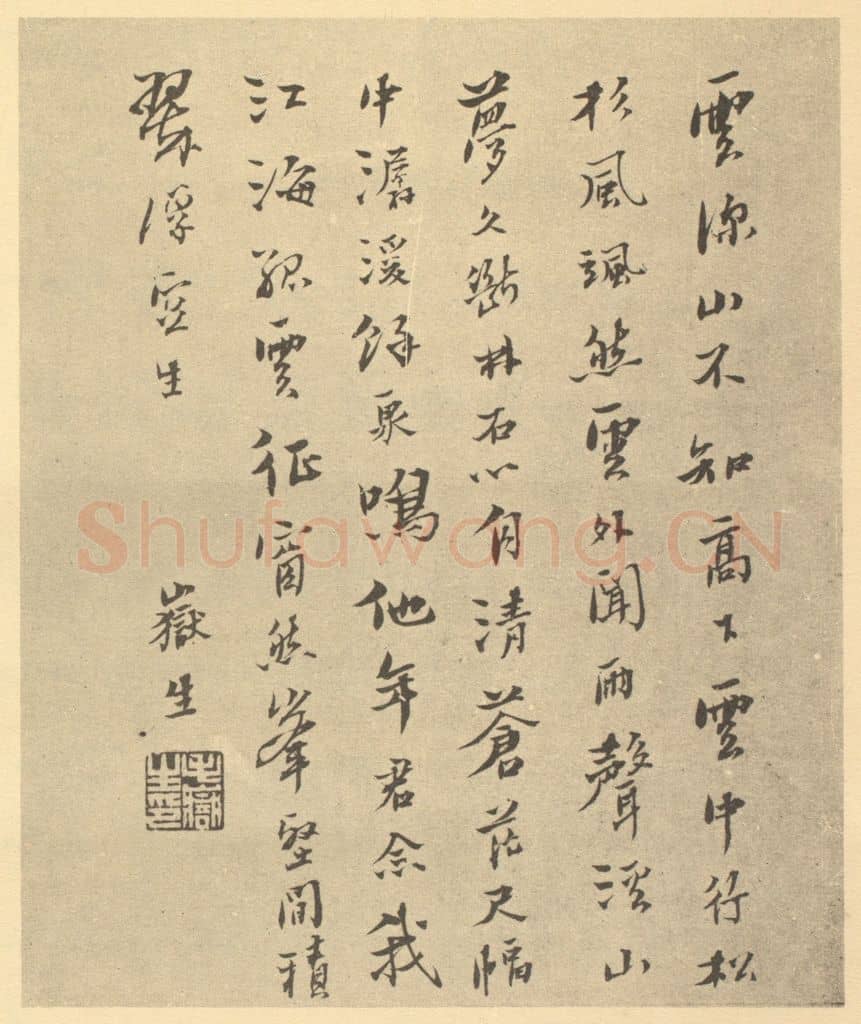 雲深山不知高下雲中行松
杉風颯然雲外聞雨聲溪山
夢久斷林石心自清蒼茫尺幅
中潺湲餘泉鳴他年君念我
江海孤雲征窅然峯壑間積
翠浮空生 嶽生
Shufawang.CN